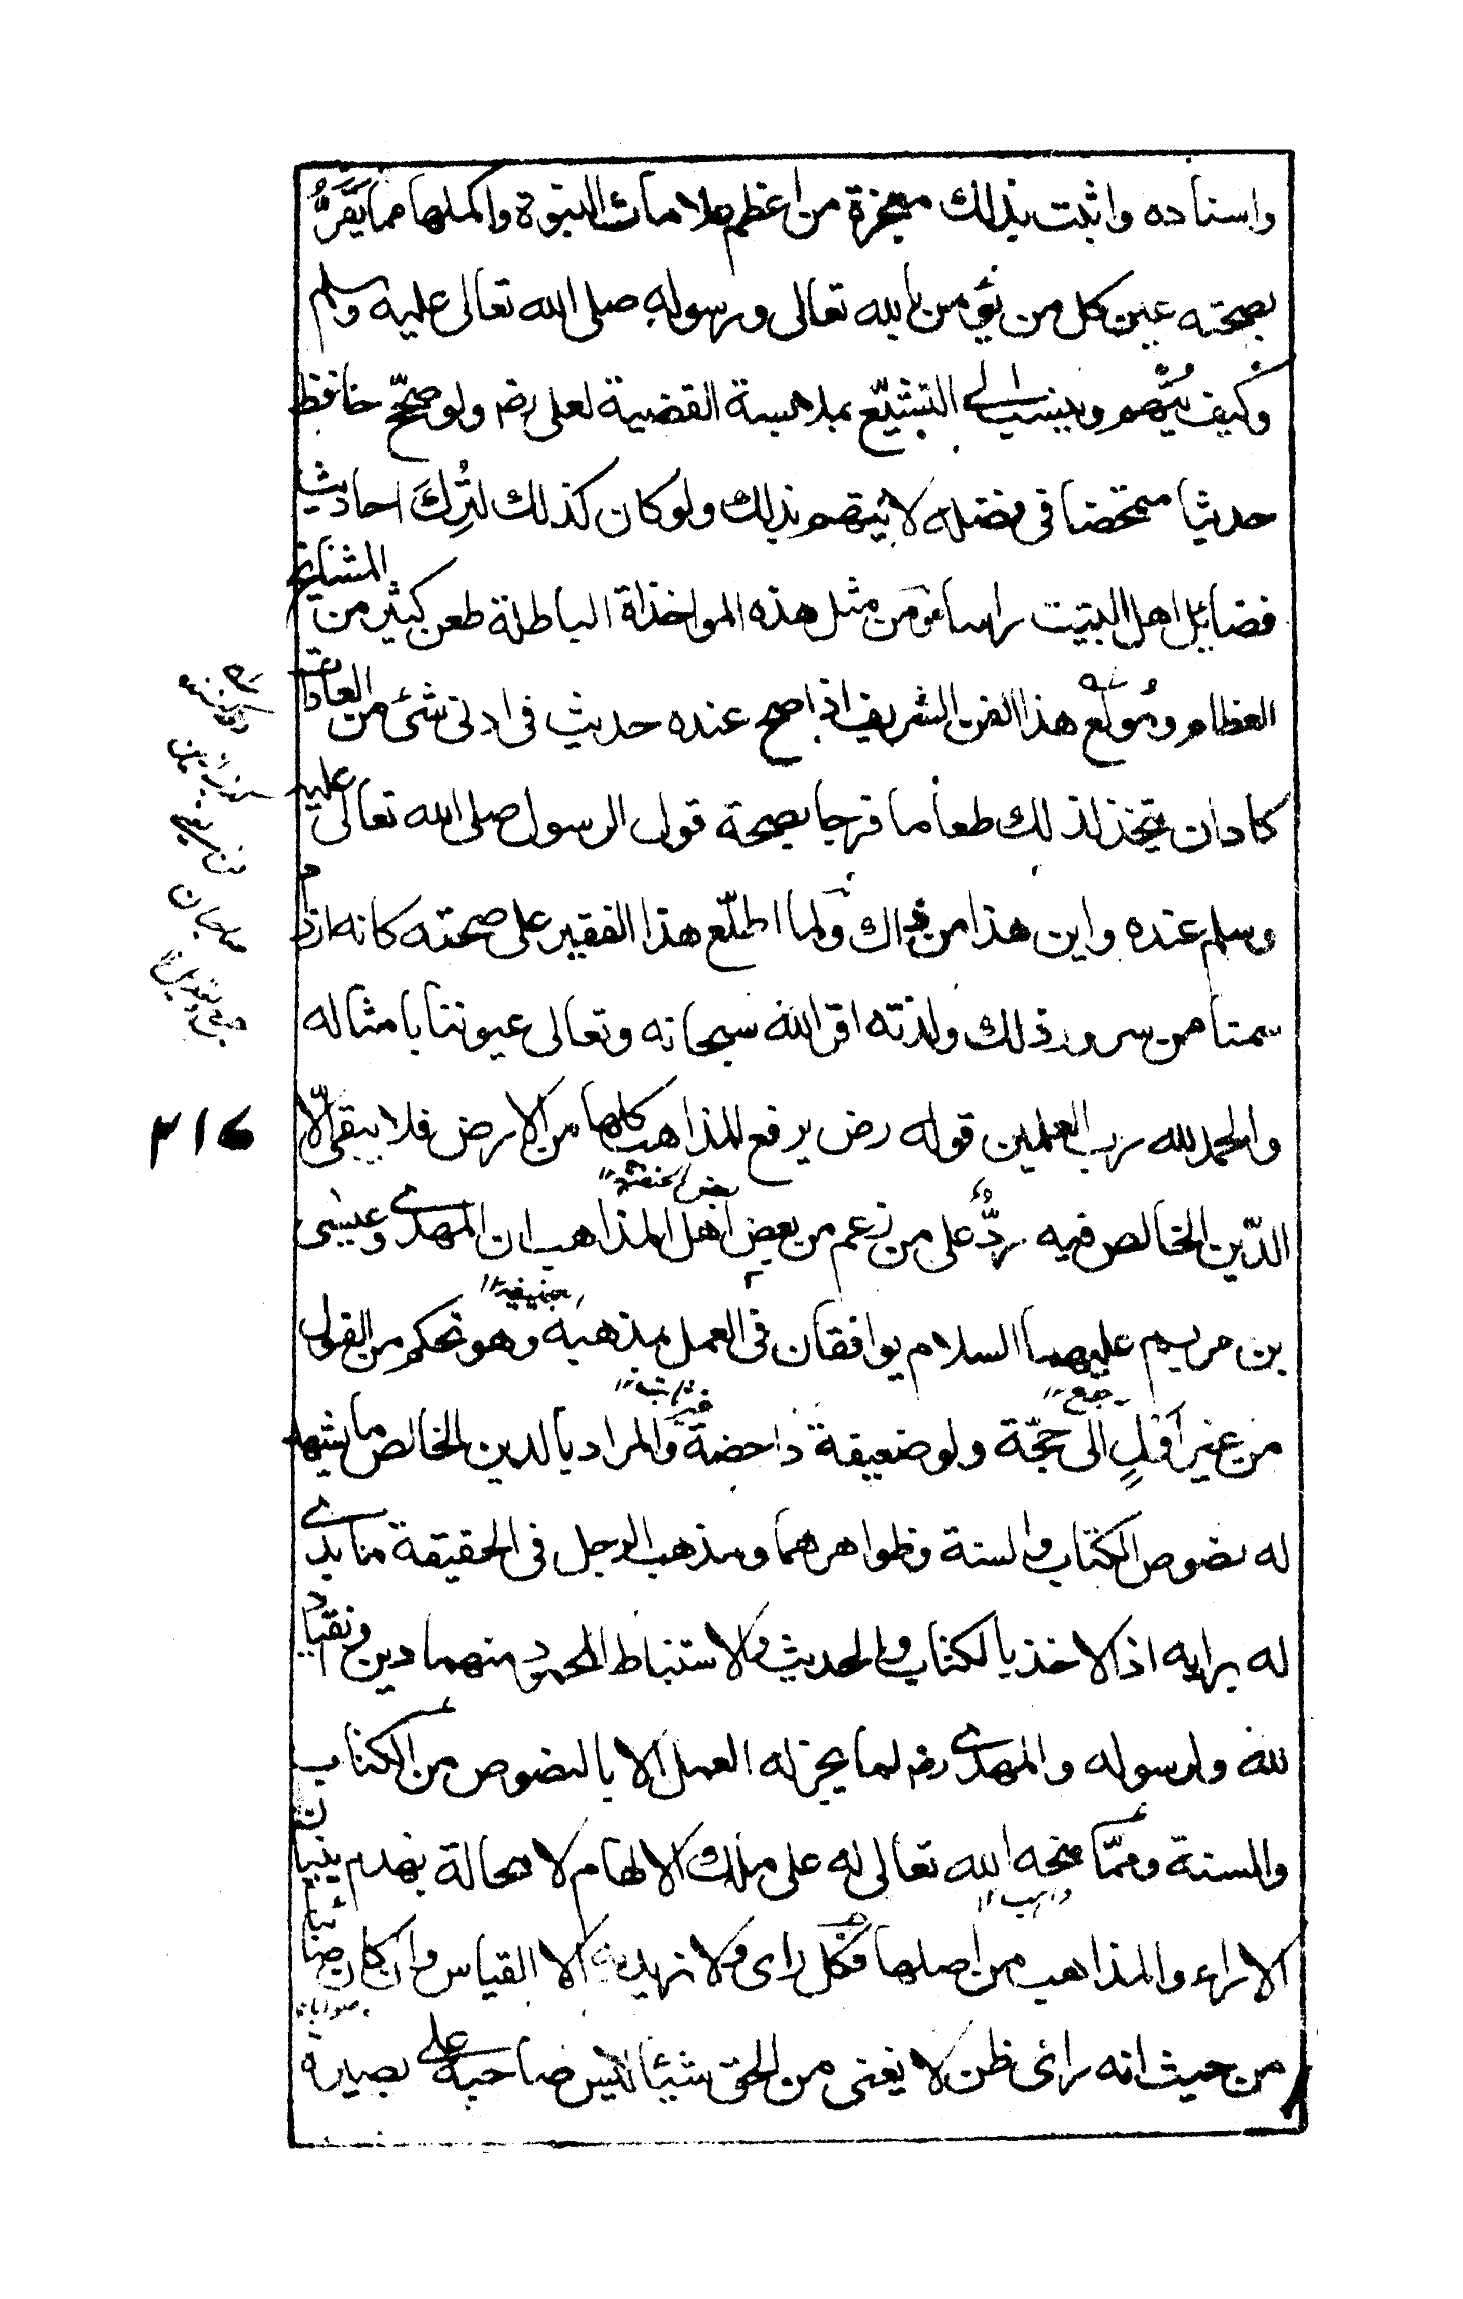 واسناده واثبت بذلك معجزة من اعظم علامات النبوة واكملها مما يَقَرُّ
بصحته عين كل من يؤمن بالله تعالى ورسوله صلى الله تعالى عليه وسلم
وكيف يُتَّهم وينسب الى التشيّع بملابسة القضية لعلى رضہ ولو صحّح حافظ
حديثا متمحضا فى فضله لا يتهم بذلك ولو كان كذلك لتُرِكَ احاديث
فضايل اهل البيت راسا ومن مثل هذه المواخذاة الباطلة طعن كثير من المشايخ
العظام ومُولَع هذا الفن الشريف اذا صح عنده حديث فى ادنى شئ من العادات
كاد ان يتخذ لذلك طعاما فرحا بصحة قول الرسول صلى الله تعالى عليه
وسلم عنده واين هذا من ذاك ولما اطلّع هذا الفقير على صحته كانه ازداد
سمنا من سرور ذلك ولذته اقر الله سبحانه وتعالى عيوننا بامثاله
والحمد لله رب العلمين قوله رض يرفع المذاهب كلها من الارض فلا يبقى الّا
٢١٦
الدّين الخالص فيه ردٌّ على من زعم من بعض اهل المذاهب ان المهدى وعيسٰى
بن مريم عليهما السلام يوافقان فى العمل بمذهبه وهو تحكم من القول
حنيفية
من غير اَفَلٍ الى حجّة ولو ضعيفة داحضة والمراد بالدين الخالص ما يشهد
له نصوص الكتاب والسنة وظواهرهما ومذهب الرجل فى الحقيقة ما يدى
له برايه اذ الاخذ بالكتاب والحديث والاستنباط المحمود منهما دين وانقياد
لله ولرسوله والمهدى رضہ لما يجز له العمل الا بالنصوص من الكتاب
والسنة ومما منحه الله تعالى له على ملك الالهام لا محالة يهدم بنيان
الاراء والمذاهب من اصلها فكل راى ولا نريد به الا القياس وان كان صائبا
من حيث انه راى ظن لا يغنى من الحق شيئا ليس صاحبه على بصيرة